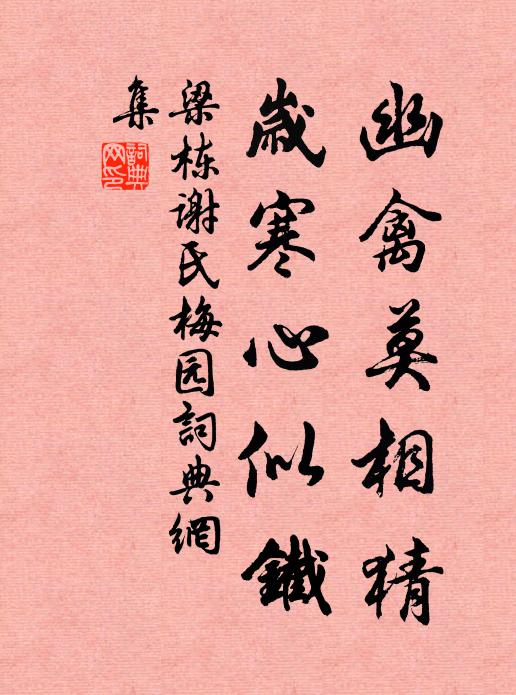 幽禽莫相猜
歲寒心似鐵
梁栋谢氏梅园詞典網
集
詞典網印